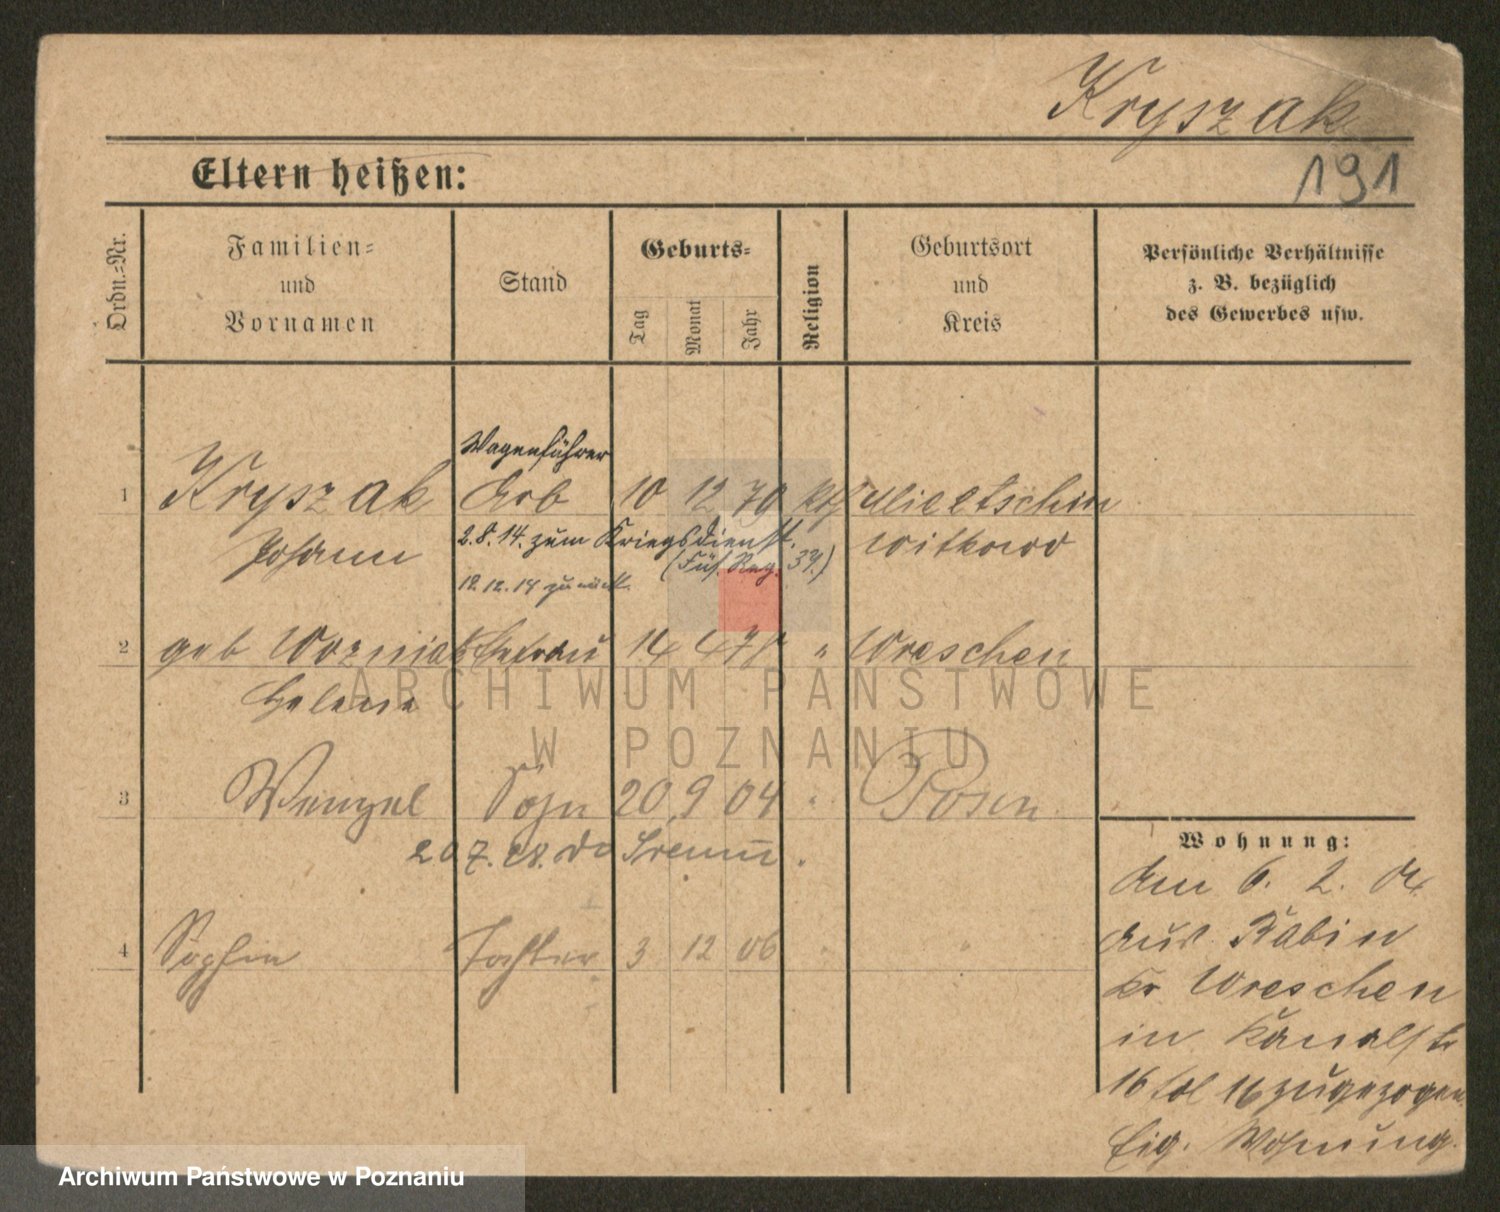 Kryszak
191
Eltern heißen:
Ordn.-Nr.
Familien-
und
Vornamen
Stand
Geburts-
Tag
Monat
Jahr
Religion
Geburtsort
und
Kreis
Persönliche Verhältnisse
z. B. bezüglich
des Gewerbes usw.
Wagenführer
1 Kryszak Arb 10 12 79 kth Mieltschin
Johann 2.8.14. zum Kriegsdienst. Witkowo
(Füs. Reg. 37.)
12.12.18 zurück.
2 geb Wozniak Ehefrau 14 4 78 " Wreschen
Helene
ARCHIWUM PAŃSTWOWE
W POZNANIU
3 Wenzel Sohn 20 9 04 " Posen
20 7. 28. Schrimm.
4 Sophie Tochter 3 12 06 " "
Wohnung:
den 6. 2. 04
aus Babin
Kr Wreschen
in Kanalstr
16 bei zugezogen.
Eig. Wohnung.
Archiwum Państwowe w Poznaniu